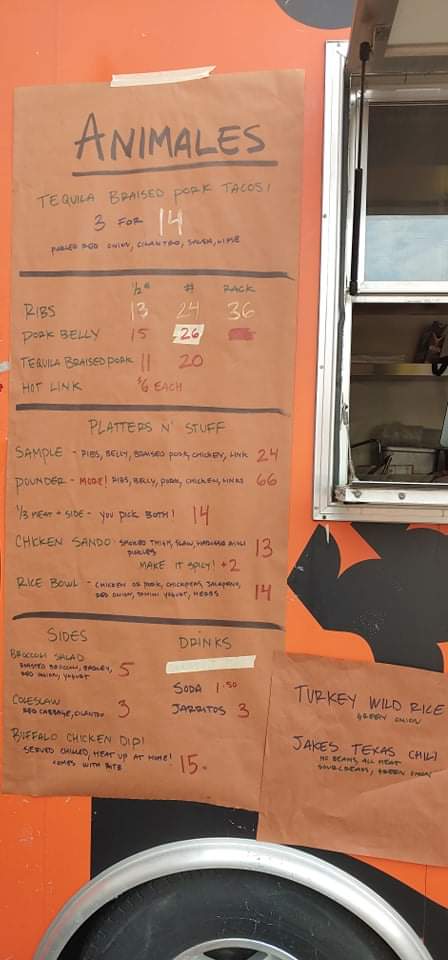 ANIMALES
TEQUILA BRAISED PORK TACOS!
3 FOR 14
PICKLED RED ONION, CILANTRO, SALSA, LIME
1/2# # RACK
RIBS 13 24 36
PORK BELLY 15 26
TEQUILA BRAISED PORK 11 20
HOT LINK $6 EACH
PLATTERS N' STUFF
SAMPLE - RIBS, BELLY, BRAISED PORK, CHICKEN, LINK 24
POUNDER - MORE! RIBS, BELLY, PORK, CHICKEN, LINKS 66
1/3 MEAT + SIDE - YOU PICK BOTH! 14
CHICKEN SANDO - SMOKED THIGH, SLAW, MAI
PICKLES 13
MAKE IT SPICY! +2
RICE BOWL - CHICKEN OR PORK, CHICKPEAS, JALAPENO,
RED ONION, TAHINI YOGURT, HERBS 14
SIDES
BROCCOLI SALAD
ROASTED BROCCOLI, BARLEY,
RED ONION, YOGURT 5
COLESLAW
RED CABBAGE, CILANTRO 3
BUFFALO CHICKEN DIP!
SERVED CHILLED, HEAT UP AT HOME!
COMES WITH 15-
DRINKS
SODA 1.50
JARRITOS 3
TURKEY WILD RICE
GREEN ONION
JAKES TEXAS CHILI
NO BEANS, ALL MEAT
SOUR CREAM, GREEN ONION